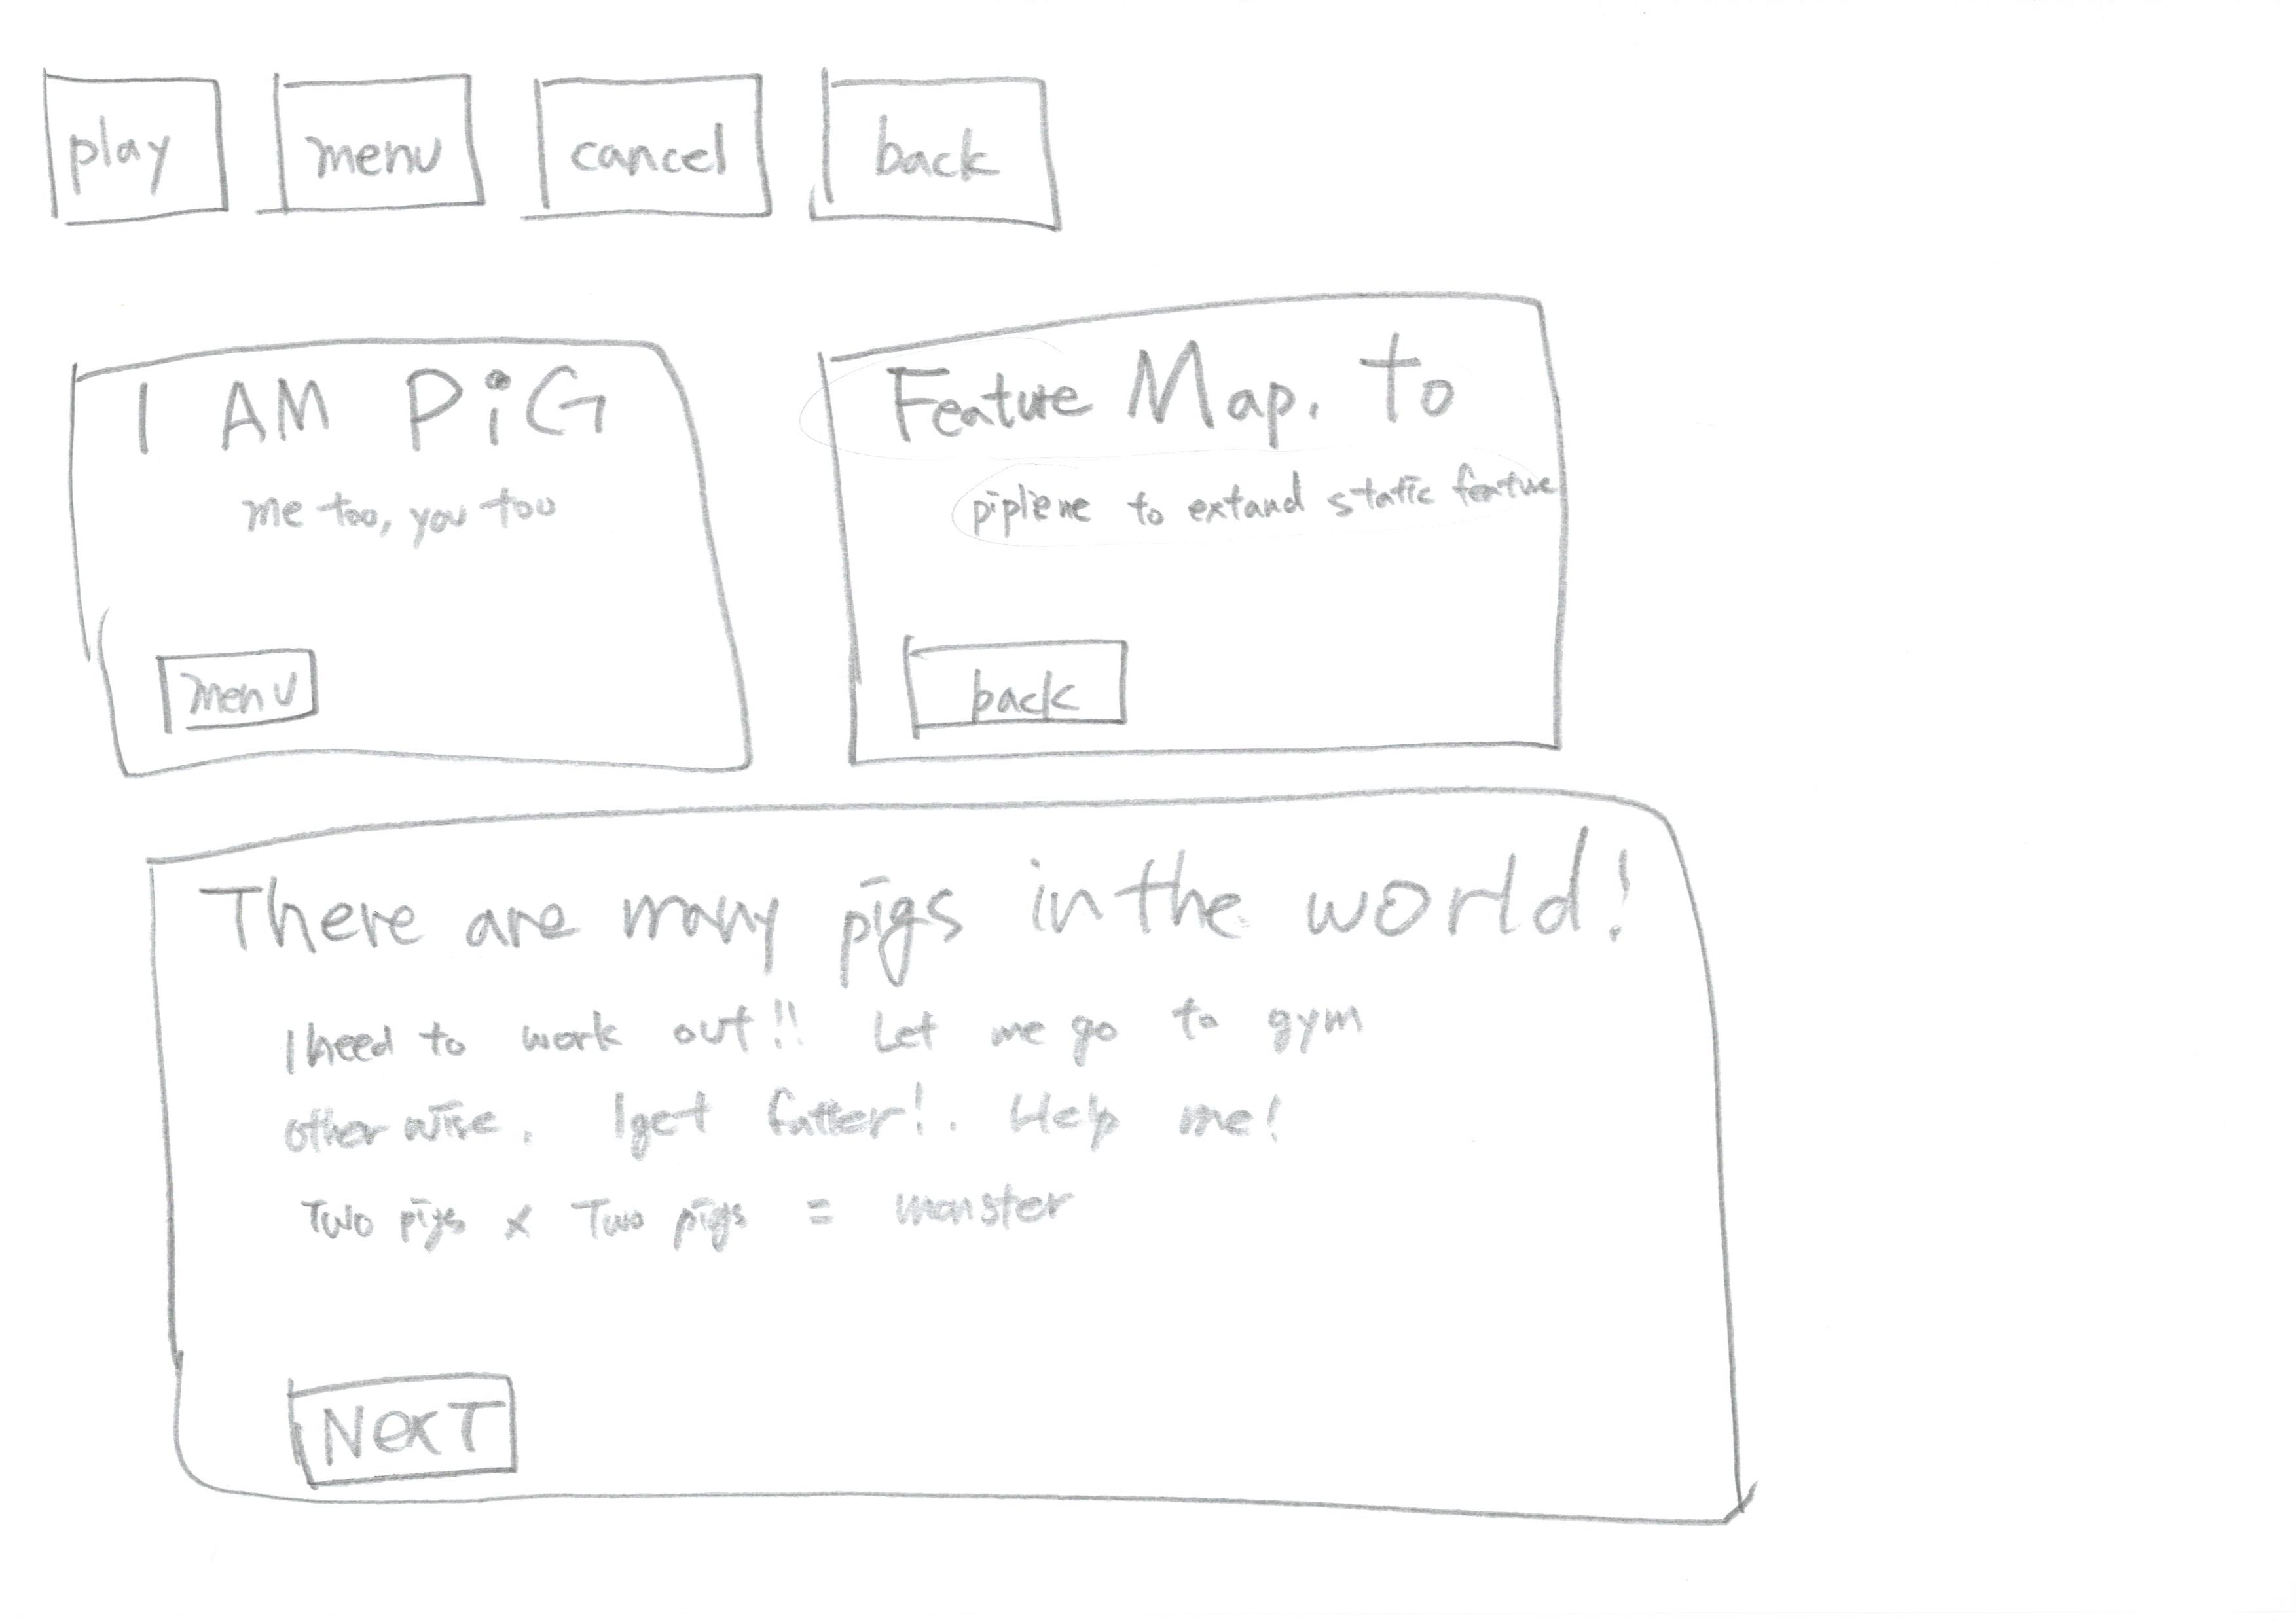 play menu cancel back
I AM PiG
me too, you too
menu
Feature Map. To
pipliene to extand static feature
back
There are many pigs in the world!
I need to work out!! Let me go to gym
otherwise. I get fatter!. Help me!
Two pigs x Two pigs = monster
NexT